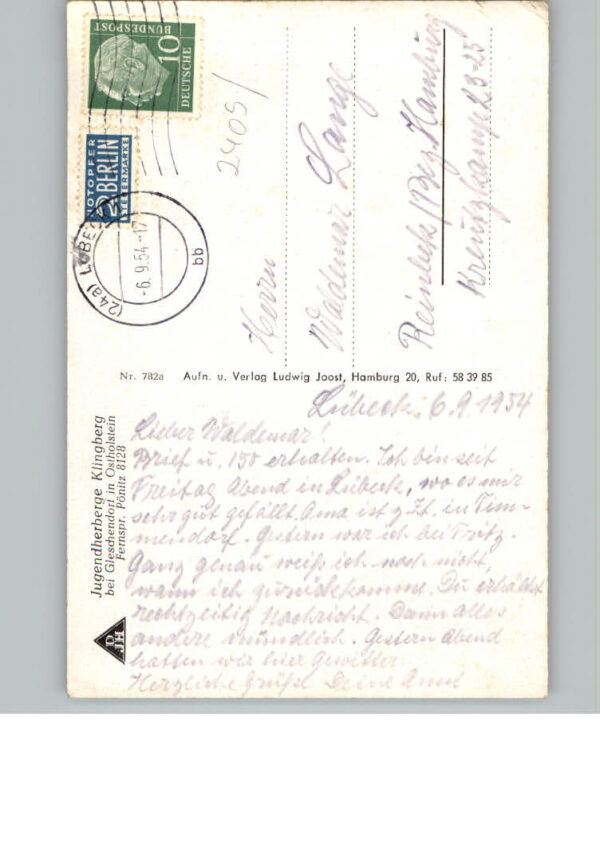 DEUTSCHE
BUNDESPOST
10
NOTOPFER
2 BERLIN
STEUERMARKE
(24a) LÜBECK
-6.9.54.-17
bb
2405/
Herrn
Waldemar Lange
Reinbek/Bez. Hamburg
Kreuzkamp 23-25
Nr. 782a Aufn. u. Verlag Ludwig Joost, Hamburg 20, Ruf: 58 39 85
Jugendherberge Klingberg
bei Gleschendorf in Ostholstein
Fernspr. Pönitz 8128
D
JH
Lübeck, 6.9.1954
Lieber Waldemar!
Brief u. 150 erhalten. Ich bin seit
Freitag Abend in Lübeck, wo es mir
sehr gut gefällt. Oma ist z. Zt. in Tim-
mendorf. Gestern war ich bei Fritz.
Ganz genau weiß ich noch nicht,
wann ich zurückkomme. Du erhältst
rechtzeitig Nachricht. Dann alles
andere mündlich. Gestern Abend
hatten wir hier Gewitter.
Herzliche Grüße Deine Anni